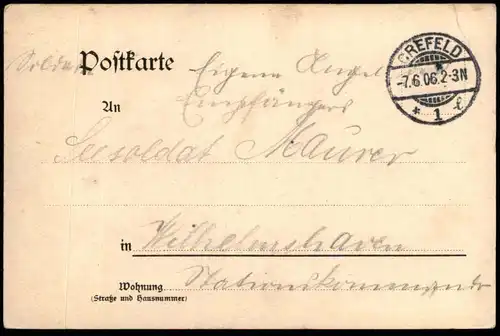 CREFELD
-7.6.06.2-3N
* 1 l
Soldat Postkarte Eigene Angel
An Empfängers
Seesoldat Maurer
in Wilhelmshaven
Wohnung Stationskommando
(Straße und Hausnummer)